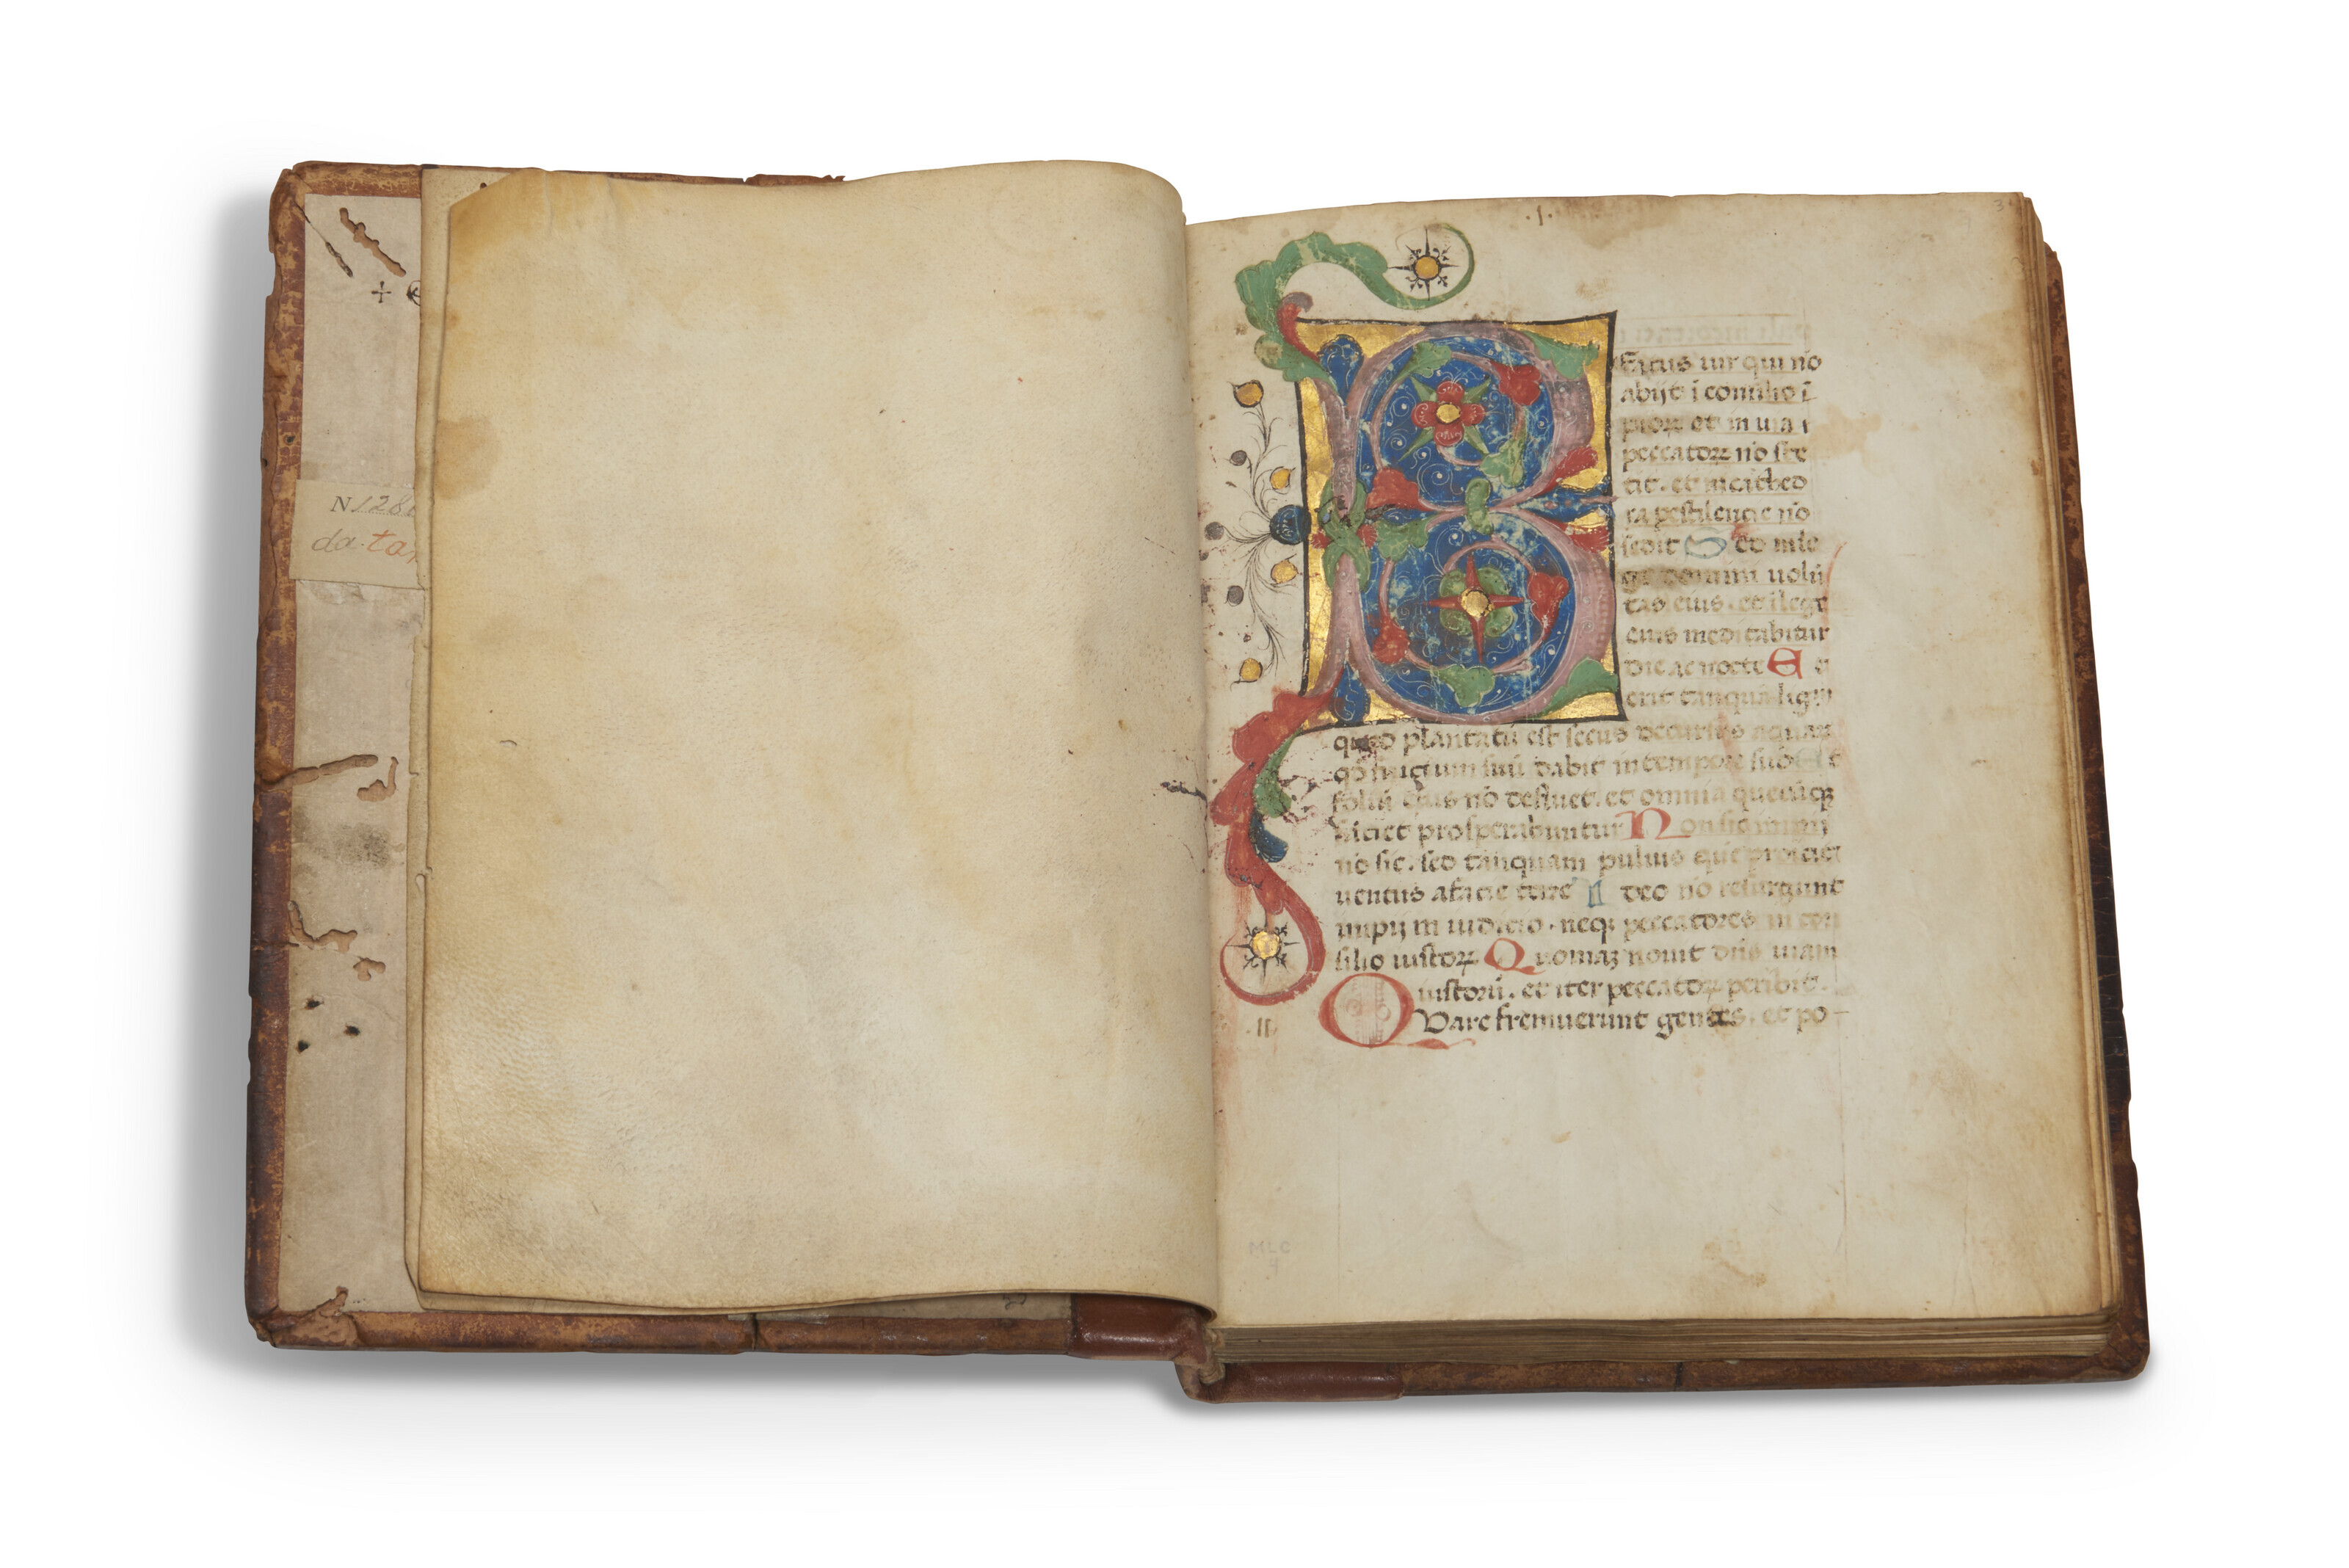 N 128
da ta
.I.
Eatus uir qui nō
abijt ī consilio ī
pioꝝ et in uia
peccatoꝝ nō ste
tit. et in cathed
ra pestilencie nō
sedit Sed in le
ge domini uolū
tas eius. et ī lege
eius meditabitur
die ac nocte Et
erit tanquā lignū
quod plantatū est secus decursus aquaꝝ
qđ fructum suū dabit in tempore suo Et
foliū eius nō defluet. et omnia quecūqꝫ
faciet prosperabuntur Non sic impij
nō sic. sed tanquam puluis quē proicit
uentus a facie terre Ideo nō resurgunt
impij in iudicio. neqꝫ peccatores in con
silio iustoꝝ Quoniaꝫ nouit dn̄s uiam
iustorū. et iter peccatoꝝ peribit.
.II.
Quare fremuerunt gentes. et po
MLC